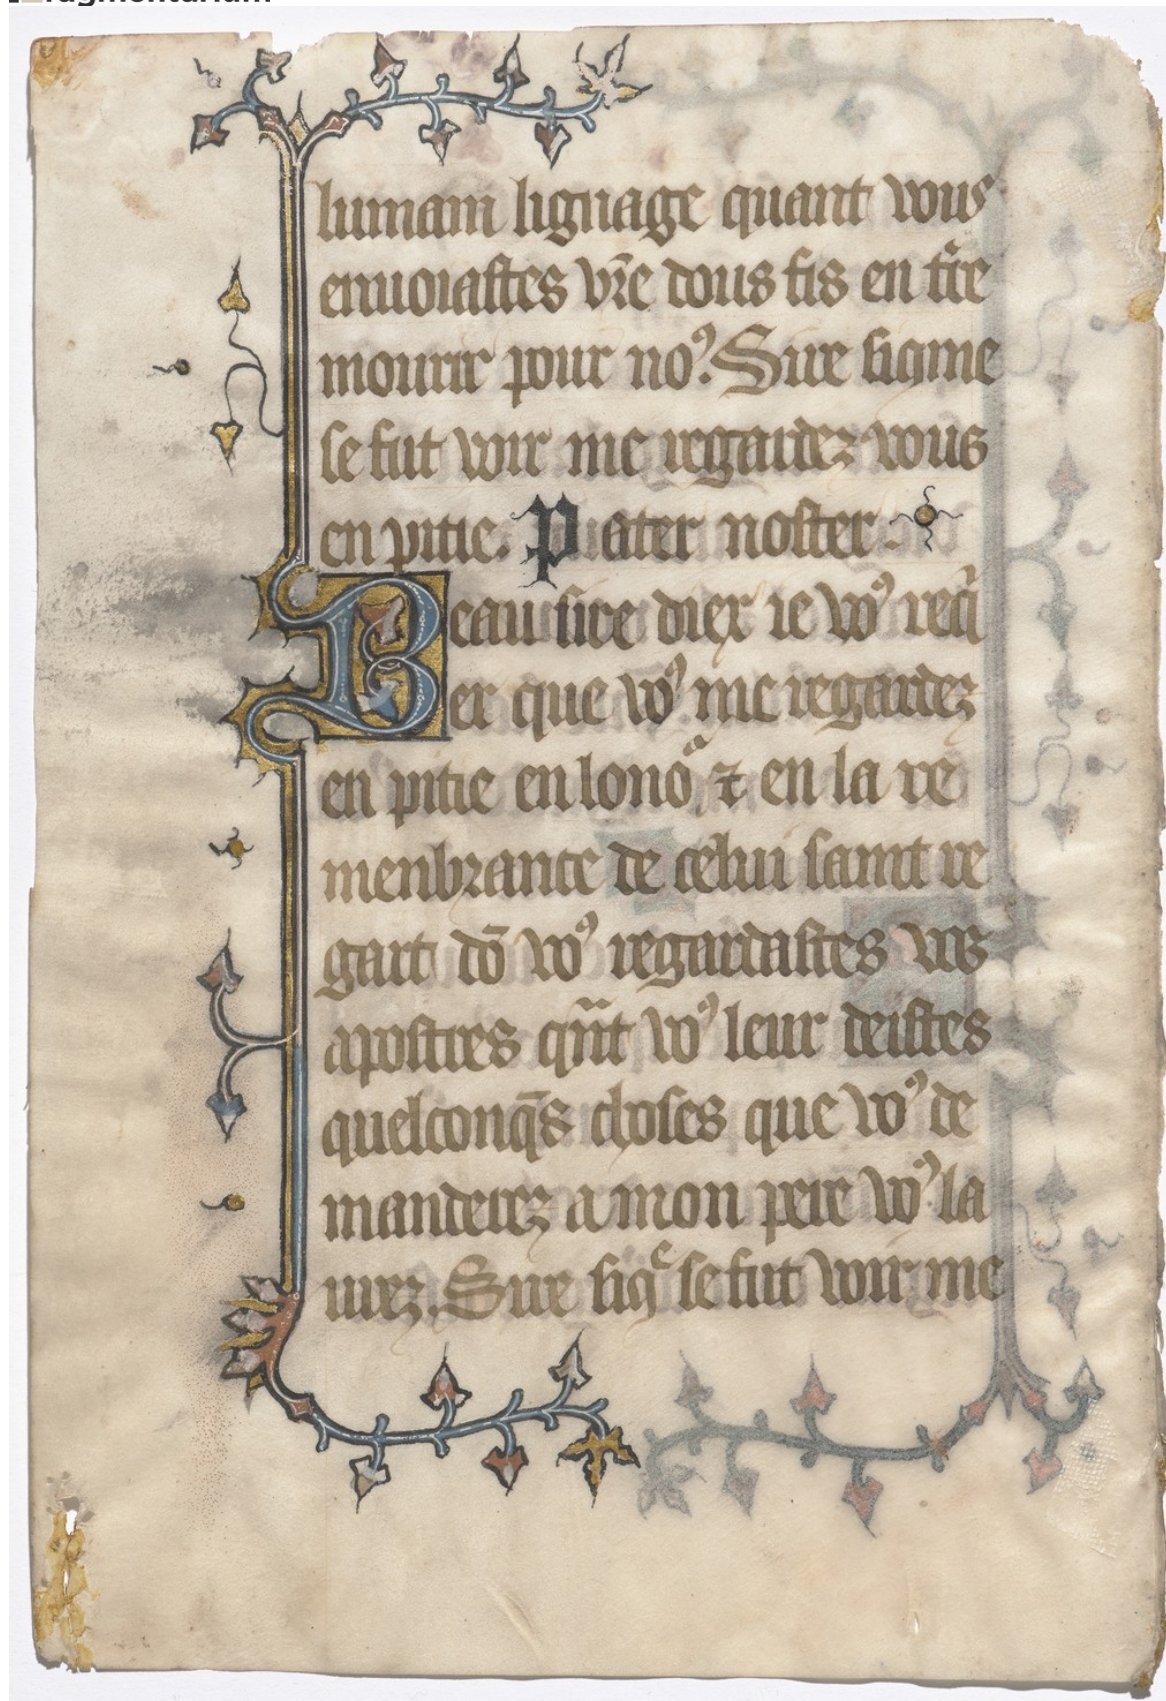 lumain lignage quant vous
enuoiastes vr̄e dous fis en tr̄e
mourir pour noꝰ. Sire si gͥme
se fut voir me regardez vous
en pitie. Pater noster.
Beau sire diex ie voꝰ req̄
er que voꝰ me regardez
en pitie en lonoͬ ⁊ en la re
menbrance de celui saint re
gart dō voꝰ regardastes vos
apostres qn̄t voꝰ leur deistes
quelconq̄s choses que voꝰ de
manderez a mon pere voꝰ la
urez. Sire si gͨ se fut voir me